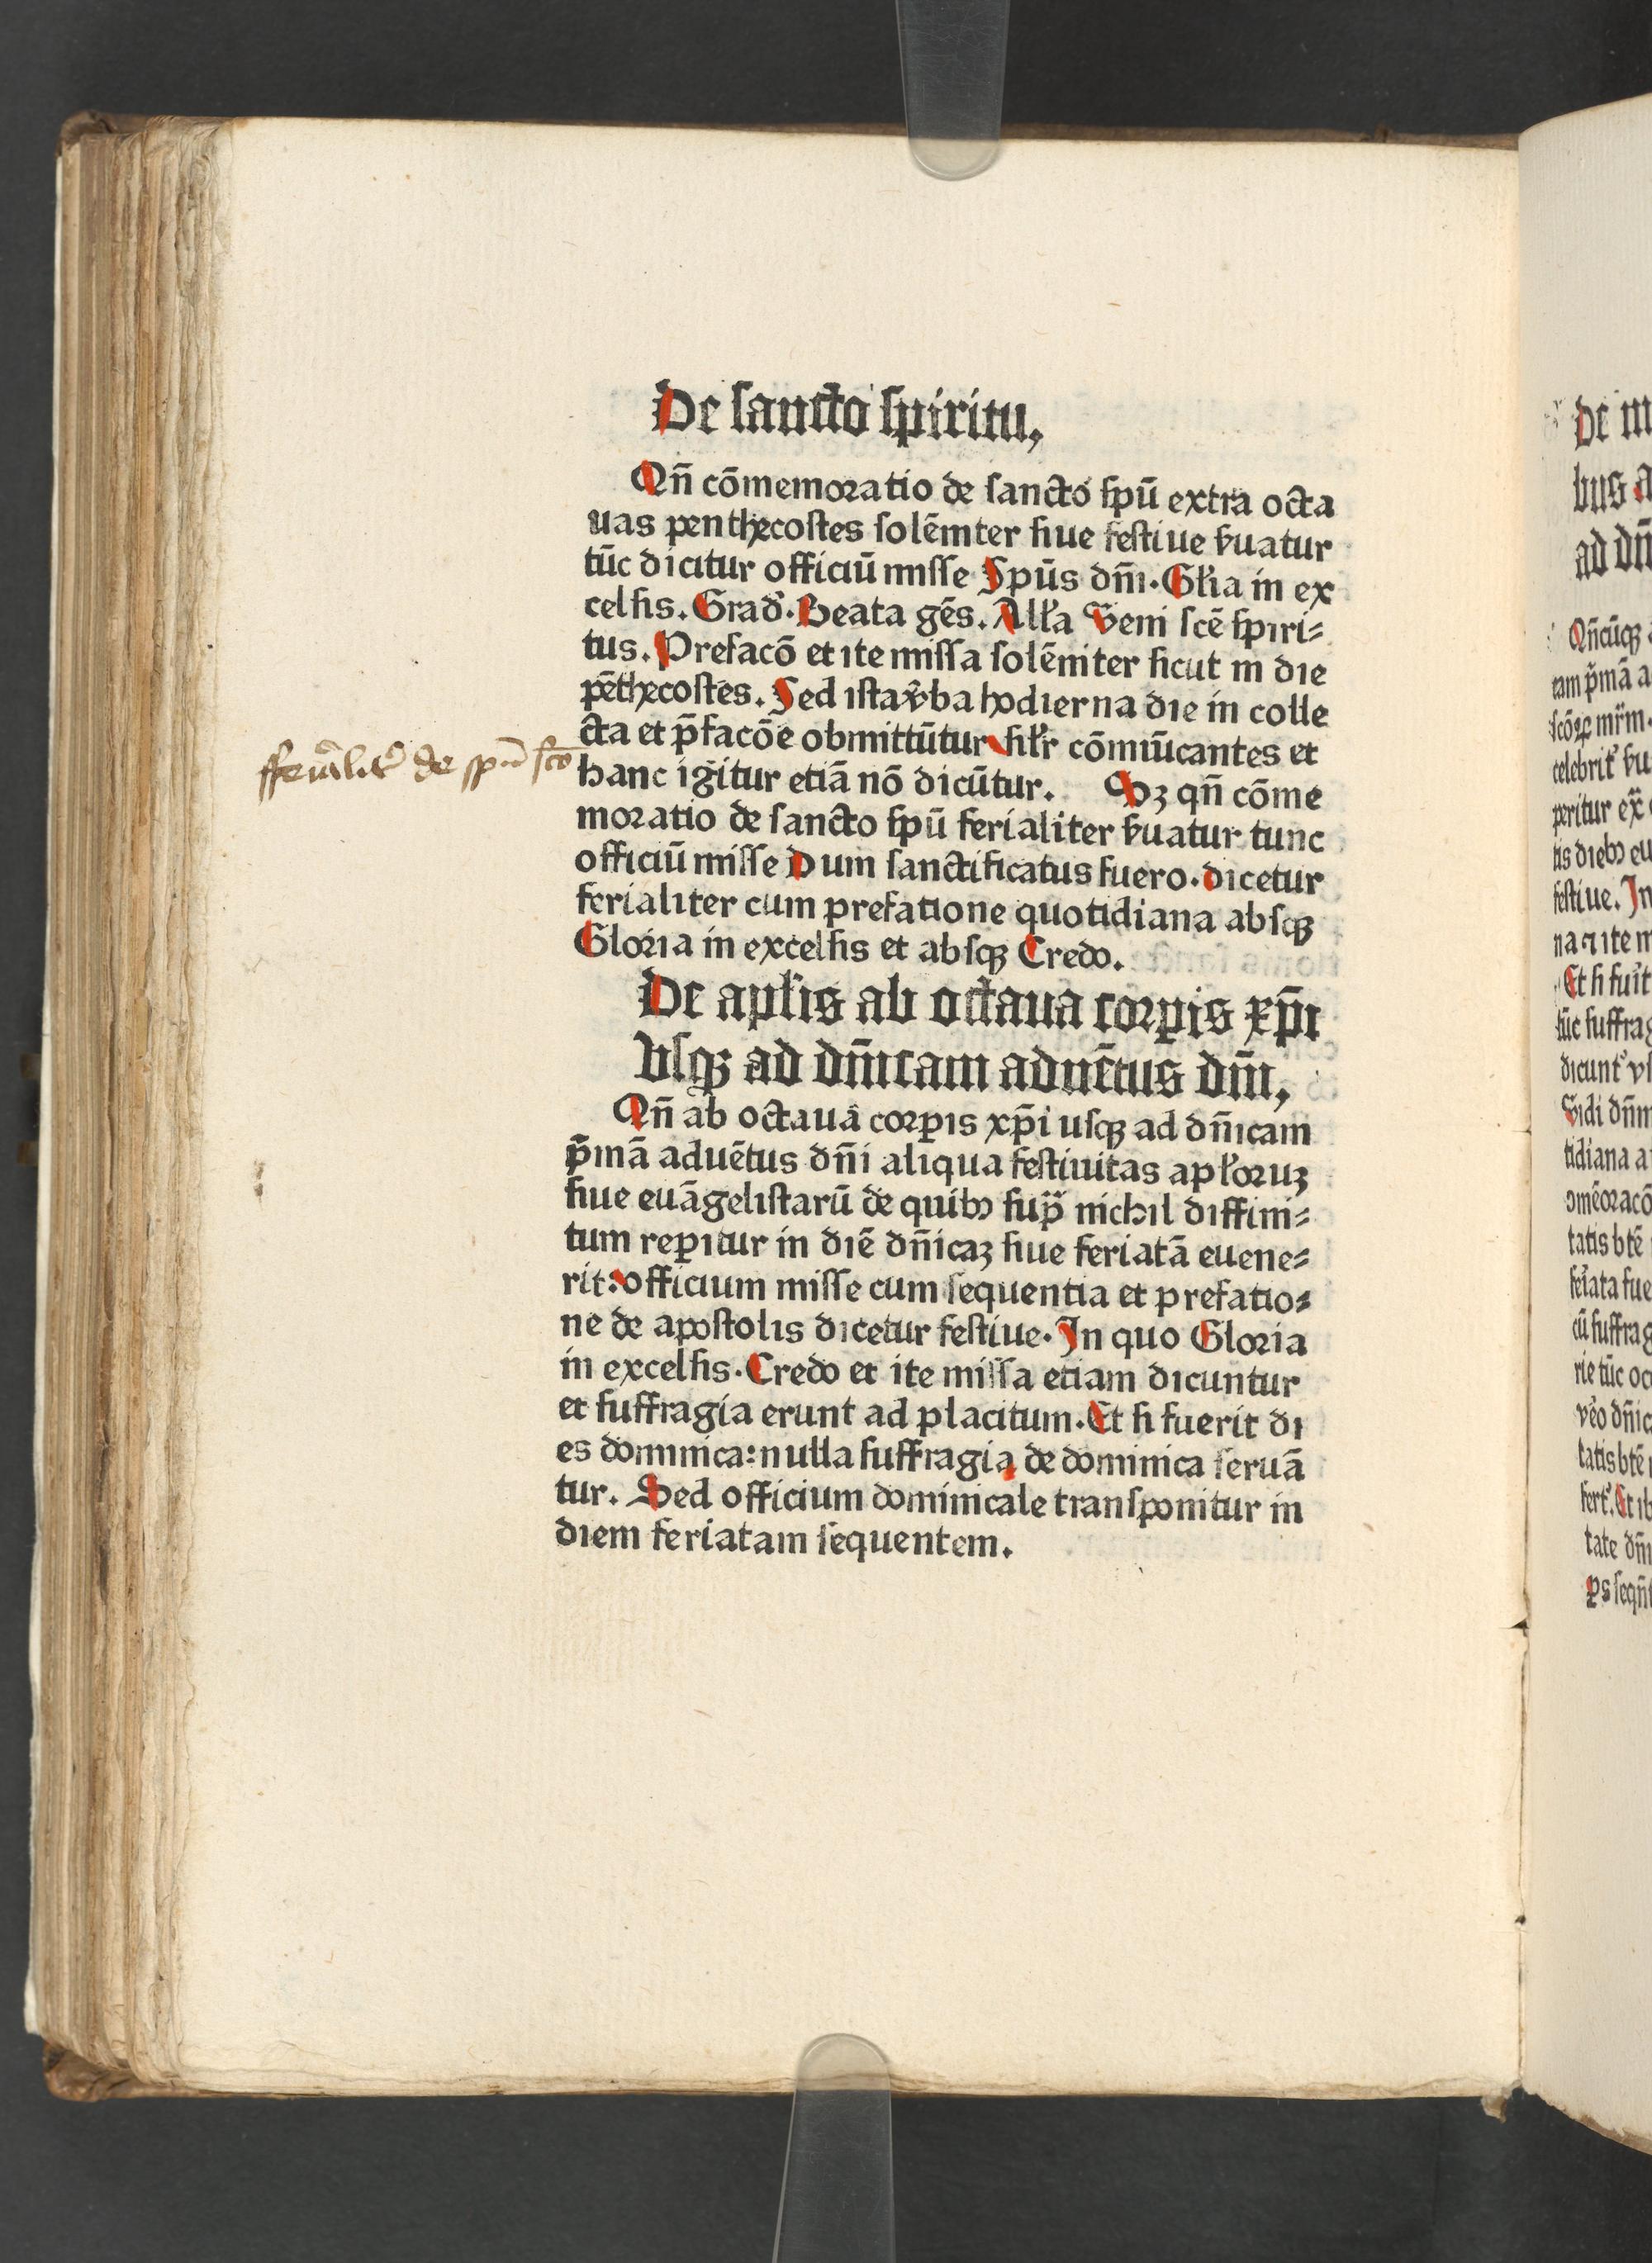 De sancto spiritu,
Qn̄ cōmemoratio de sancto spū extra octa
uas penthecostes solēmter siue festiue ẜuatur
tūc dicitur officiū misse Spūs dn̄i. Gl'ia in ex
celsis. Grad'. Beata gēs. All'a Veni scē spiri⸗
tus. Prefacō et ite missa solēniter sicut in die
pēthecostes. Sed ista v̄ba hodierna die in colle
cta et p̄facōe obmittūtur sil'r cōmūcantes et
hanc igitur etiā nō dicūtur. Sꝫ qn̄ cōme
moratio de sancto spū ferialiter ẜuatur tunc
officiū misse Dum sanctificatus fuero. dicetur
ferialiter cum prefatione quotidiana absqꝫ
Gloria in excelsis et absqꝫ Credo.
ffeīalit' de spū scō
De apl'is ab octaua corꝑis xp̄i
Vsqꝫ ad dn̄icam aduētus dn̄i,
Qn̄ ab octaua corꝑis xp̄i usqꝫ ad dn̄icam
p̄mā aduētus dn̄i aliqua festiuitas apl'oruꝫ
siue euāgelistarū de quibꝯ supᷓ nichil diffini⸗
tum reꝑitur in diē dn̄icaꝫ siue feriatā euene⸗
rit: officium misse cum sequentia et prefatio⸗
ne de apostolis dicetur festiue. In quo Gloria
in excelsis. Credo et ite missa etiam dicuntur
et suffragia erunt ad placitum. Et si fuerit di
es dominica: nulla suffragia de dominica seruā
tur. Sed officium dominicale transponitur in
diem feriatam sequentem.
De m
bus a
ad dn̄
Qn̄cūqꝫ
tam p̄mā a
celebrit' ẜu
peritur
tis diebꝯ eu
festiue. In
na ⁊ ite m
Et si fu'it
tūc suffrag
dicunt' vs
Vidi dn̄m
tidiana a
tatis btē
feriata fue
cū suffrag
rie tūc oc
v'o dn̄ic
tatis btē
fert'. Et ib
tate dn̄i
ps seqn̄t